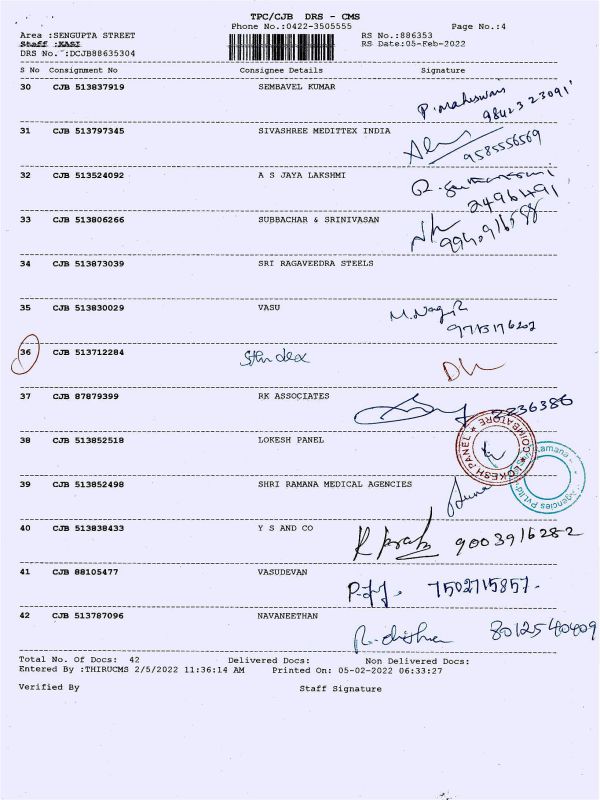 TPC/CJB DRS - CMS
Phone No.:0422-3505555 Page No.:4
Area :SENGUPTA STREET RS No.:886353
Staff :KASI RS Date:05-Feb-2022
DRS No. :DCJB88635304
S No Consignment No Consignee Details Signature
30 CJB 513837919 SEMBAVEL KUMAR
P. maheswari
98423 23091
31 CJB 513797345 SIVASHREE MEDITTEX INDIA
9585556569
32 CJB 513524092 A S JAYA LAKSHMI
2496491
33 CJB 513806266 SUBBACHAR & SRINIVASAN
34 CJB 513873039 SRI RAGAVEEDRA STEELS
35 CJB 513830029 VASU
36 CJB 513712284
37 CJB 87879399 RK ASSOCIATES
2236386
38 CJB 513852518 LOKESH PANEL
LOKESH PANEL * COIMBATORE *
39 CJB 513852498 SHRI RAMANA MEDICAL AGENCIES
40 CJB 513838433 Y S AND CO
9003916282
41 CJB 88105477 VASUDEVAN
7502715857.
42 CJB 513787096 NAVANEETHAN
8012540409
Total No. Of Docs: 42 Delivered Docs: Non Delivered Docs:
Entered By :THIRUCMS 2/5/2022 11:36:14 AM Printed On: 05-02-2022 06:33:27
Verified By Staff Signature